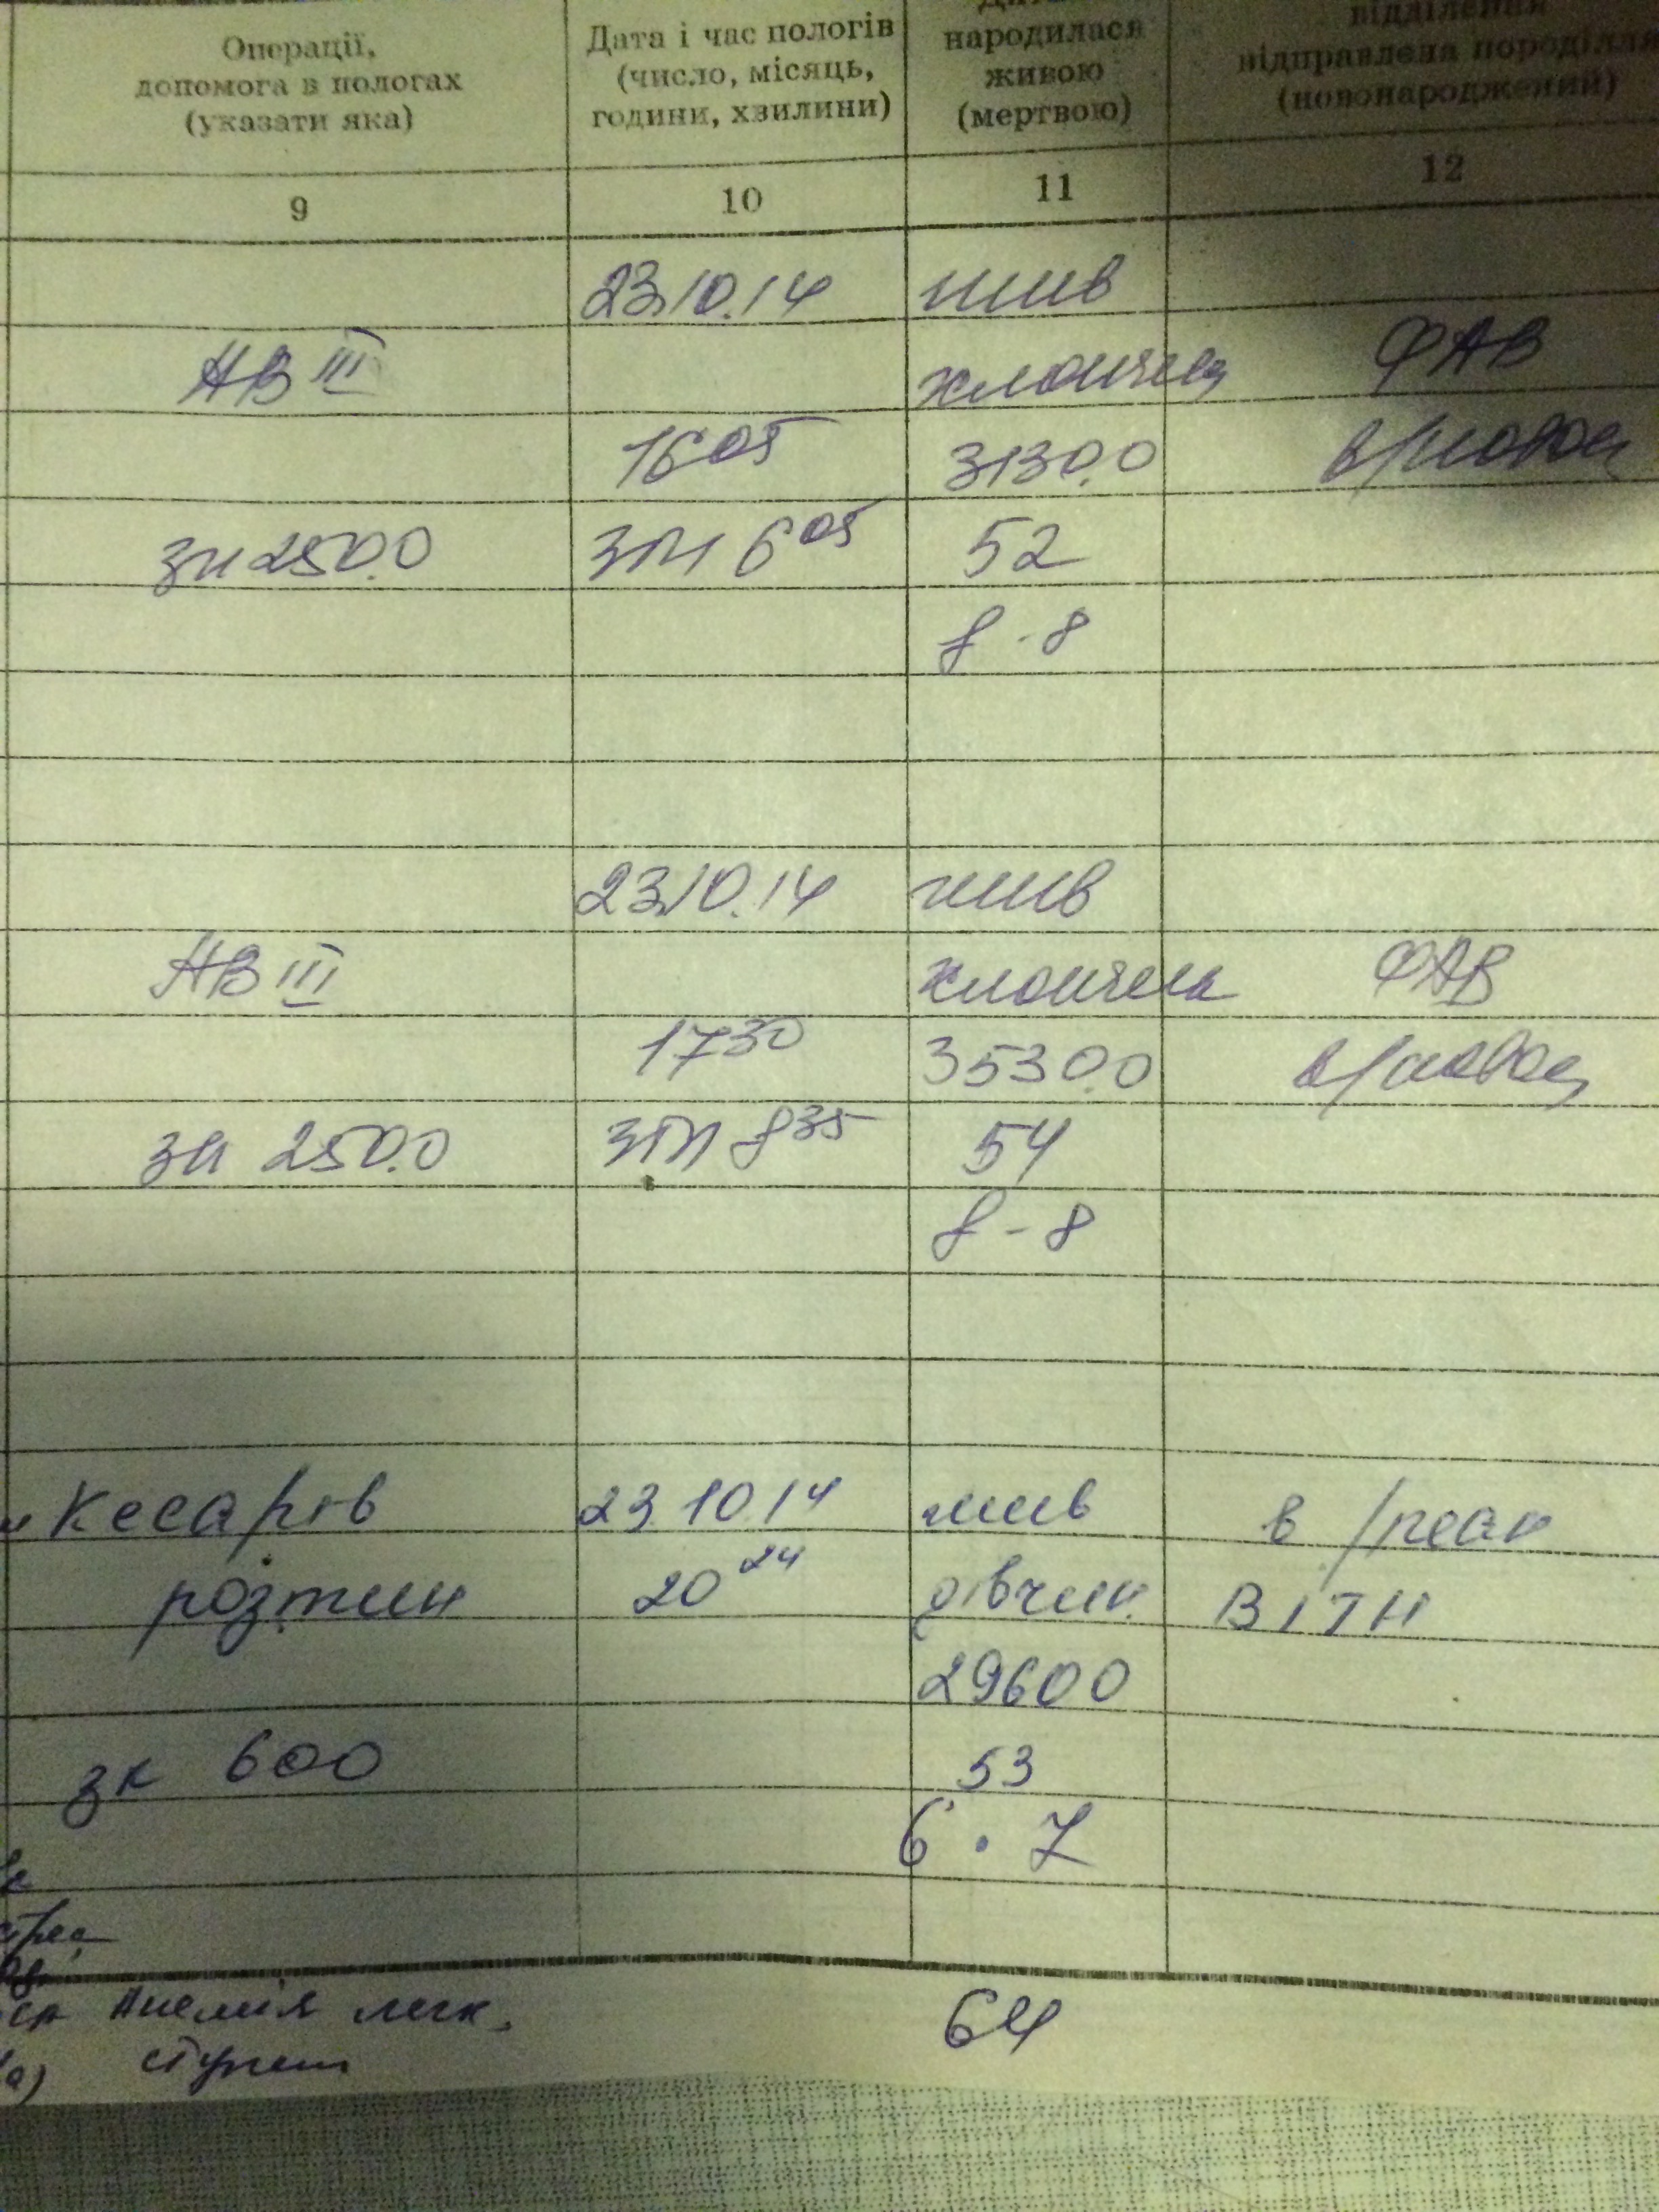 Операції,
допомога в пологах
(указати яка)
Дата і час пологів
(число, місяць,
години, хвилини)
народилася
живою
(мертвою)
відділення
відправлена породілля
(новонароджений)
9 10 11 12
23.10.14 жив
АВ III хлопчик ФАВ
16 05 3130.0
зк 250.0 ЗПП 6 05 52
8 - 8
23.10.14 жив
АВ III хлопчик ФАВ
17 30 3530.0
зк 250.0 ЗПП 8 35 54
8 - 8
Кесарів 23 10 14 жив в/реан
розтин 20 24 дівчин. ВІТН
29600
зк 600 53
6 · 7
Анемія легк. 64
ступеня